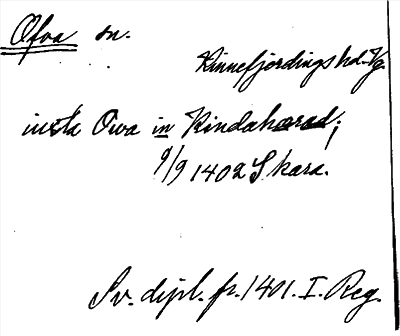 Öfva sn.
Kinnefjerdings hd. Vg.
iuxta Owa in Kindahærad;
9/9 1402 Skara.
Sv. dipl. fr. 1401. I. Reg.